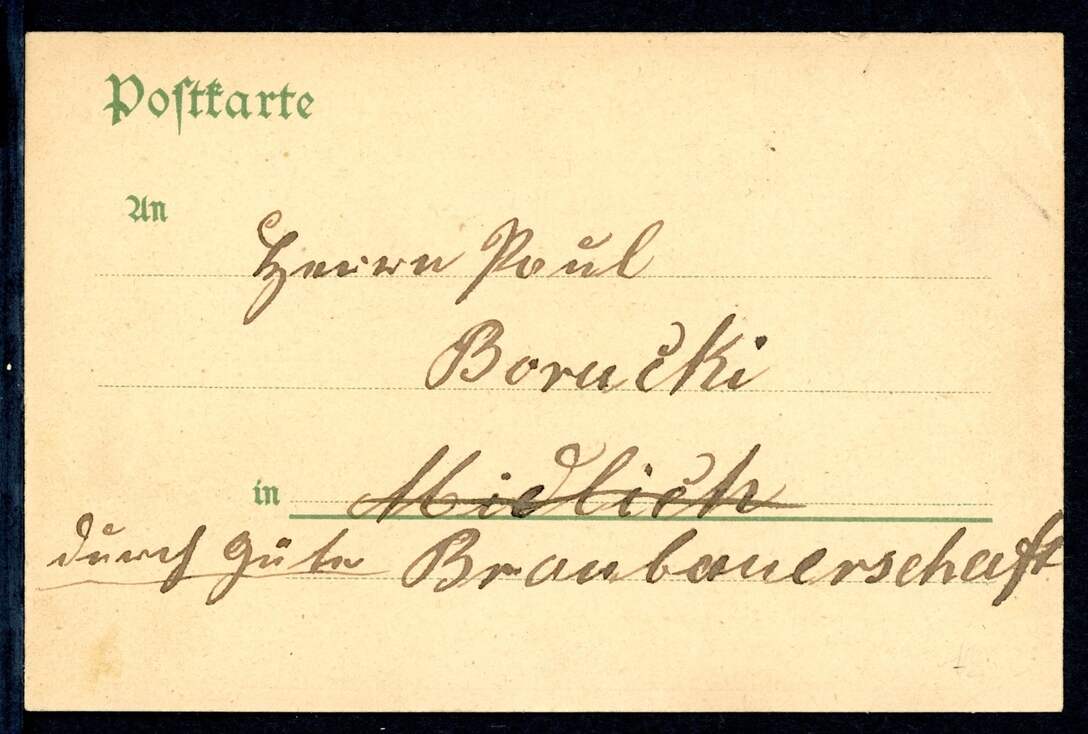 Postkarte
An
Herrn Paul
Borucki
in Midlich
durch Güte Braubauerschaft